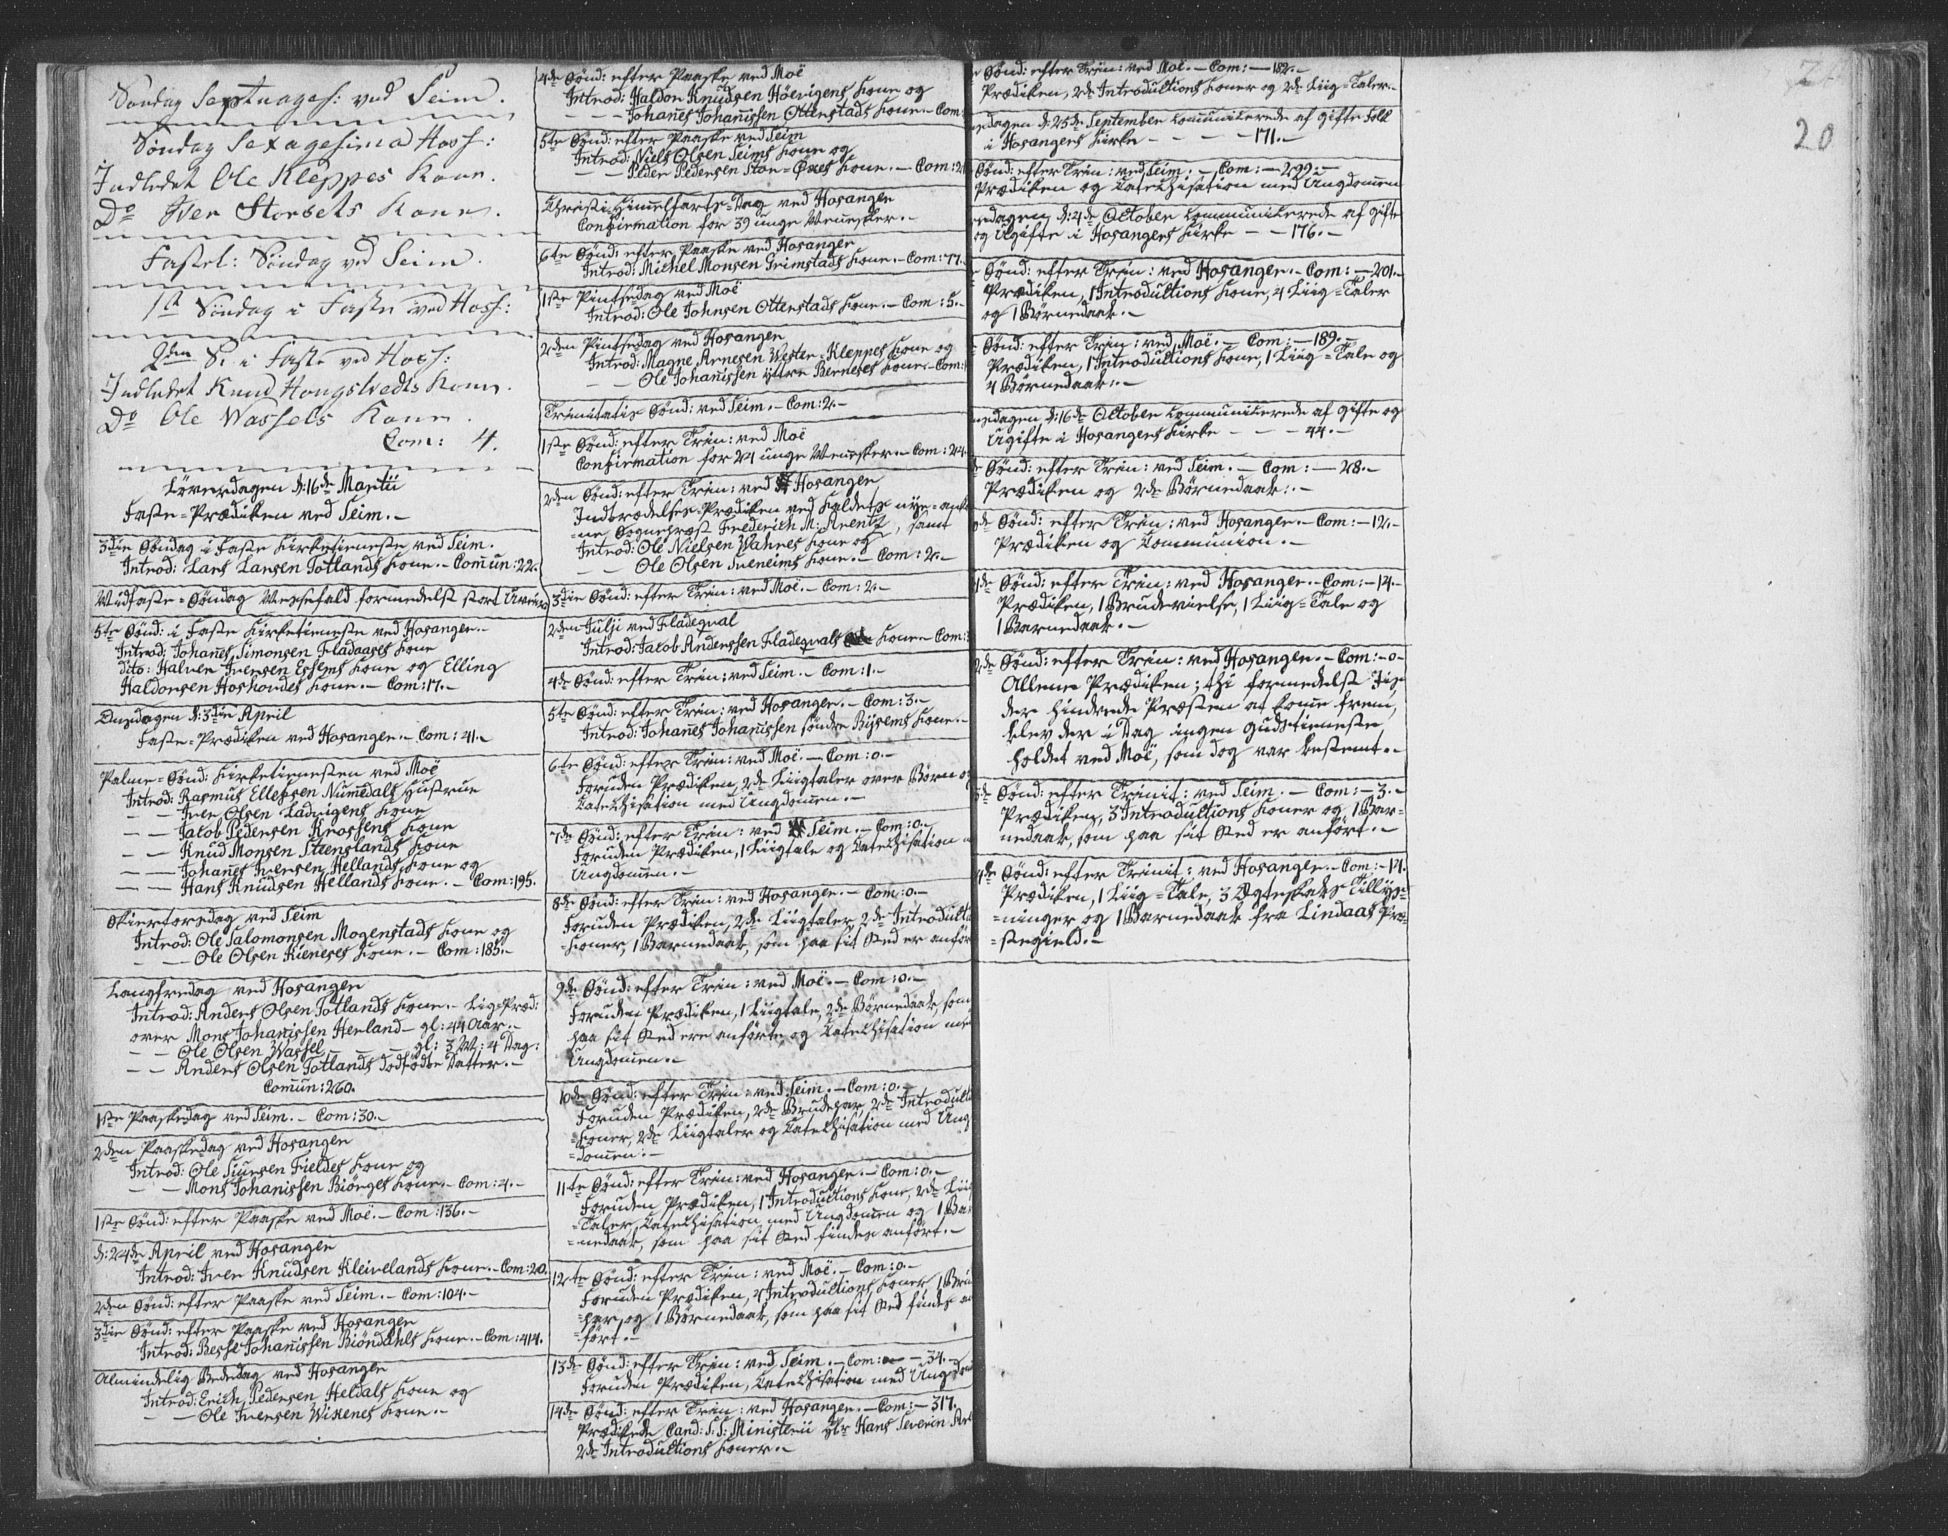 Søndag Septuages: ved Seim.
Søndag Sexagesima Hoss:
Indledet Ole Kleppes Kone.
Do Iver Storsets Kone.
Fastel: Søndag ved Seim.
1te Søndag i Faste ved Hoss:
2den S. i Faste ved Hoss:
Indledet Knud Hongstvedts Kone.
Do Ole Wassels Kone.
Com: 4.
Løverdagen d: 16de Martii
Faste-Prædiken ved Seim.-
3die Søndag i Faste Kirketieneste ved Seim.
Introd: Lars Larsen Totlands Kone.- Comun: 22.
Midfaste-Søndag Messefald formedelst stort
5te Sønd: i Faste Kirketieneste ved Hosanger.-
Introd: Johanes Simonsen Fladaases Kone
dito: Halver Iversen Essems Kone og Elling
Haldorsen Hoshovdes Kone.- Com: 17.-
Onsdagen d: 3die April
Faste-Prædiken ved Hosanger.- Com: 41.-
Palme-Sønd: Kirketienesten ved Moë
Introd: Rasmus Ellefsen Numedals Hustrue
- - Iver Olsen Ladvigens Kone
- - Jacob Pedersen Krossens Kone
- - Knud Monsen Steenslands Kone
- - Johanes Iversen Hellands Kone og
- - Hans Knudsen Hellands Kone.- Com: 195.
Skiertorsdag ved Seim
Introd: Ole Salomonsen Mogenstads Kone og
- - Ole Olsen Rieneses Kone.- Com: 185.-
Langfredag ved Hosanger
Introd: Anders Olsen Totlands Kone.- Lig-Præd:
over Mons Johanissen Herland - gl: 44 Aar.-
- - Ole Olsen Wassel - - gl: 3 M: 4 Dag:
- - Anders Olsen Totlands dødfødte Datter.-
Comun: 260.
1ste Paaskedag ved Seim.- Com: 30.-
2den Paaskedag ved Hosanger
Introd: Ole Siursen Fieldes Kone og
- - Mons Johanissen Biörges Kone.- Com: 4.-
1ste Sønd: efter Paaske ved Moë.- Com: 136.-
d: 24de April ved Hosanger
Introd: Iver Knudsen Kleivelands Kone.- Com: 20.
2den Sønd: efter Paaske ved Seim.- Com: 104.-
3die Sønd: efter Paaske ved Hosanger
Introd: Besse Johanissen Biöndahls Kone.- Com: 414.
Almindelig Bededag ved Hosanger
Introd: Erich Pedersen Heldals Kone og
- - Ole Iversen Wikenes Kone.-
4de Sønd: efter Paaske ved Moë
Introd: Haldor Knudsen Höevigens Kone og
- - Johanes Johanissen Otterstads Kone.- Com:
5te Sønd: efter Paaske ved Seim
Introd: Niels Olsen Seims Kone og
- - Peder Pedersen Store-Öxes Kone.- Com: 2
Christi Himmelfarts-Dag ved Hosanger
Confirmation for 39 unge Menesker.-
6te Sønd: efter Paaske ved Hosanger
Introd: Michel Monsen Grimstads Kone.- Com: 77.
1ste Pintsedag ved Moë
Introd: Ole Johnsen Otterstads Kone.- Com: 5.-
2den Pintsedag ved Hosanger
Introd: Magne Arnesen Wester-Kleppes Kone og
- - Ole Johanissen yttre Berneses Kone.- Com:
Trinitatis Sønd: ved Seim.- Com: 2.-
1ste Sønd: efter Trin: ved Moë
Confirmation for 21 unge Menesker.- Com: 24.
2den Sønd: efter Trin: ved Hosanger
Indtrædelses-Prædiken ved Kaldets nye-ank
-ne Sogneprest Frederich M: Arentz, samt
Introd: Ole Nielsen Wahnes Kone og
- Ole Olsen Sveneims Kone.- Com: 2.-
3die Sønd: efter Trin: ved Moë.- Com: 2.-
2den Julji ved Fladeqval
Introd: Jacob Anderssen Fladeqvals Kone.- Com:
4de Sønd: efter Trin: ved Seim.- Com: 1.-
5te Sønd: efter Trin: ved Hosanger.- Com: 3.-
Introd: Johanes Johanissen søndre Bysems Kone.-
6te Sønd: efter Trin: ved Moë.- Com: 0.-
Foruden Prædiken, 2de Liigtaler over Börn og
Catechisation med Ungdomen.-
7de Sønd: efter Trin: ved Seim.- Com: 0.-
Foruden Prædiken, 1 Liigtale og Catechisation
Ungdomen.-
8de Sønd: efter Trin: ved Hosanger.- Com: 0.-
Foruden Prædiken, 2de Liigtaler, 2de Introducti
-Koner, 1 Barnedaab, som paa sit Sted er anför
9de Sønd: efter Trin: ved Moë.- Com: 0.-
Foruden Prædiken, 1 Liigtale, 2de Börnedaab, som
paa sit Sted ere anförte, og Catechisation med
Ungdomen.-
10de Sønd: efter Trin: ved Seim.- Com: 0.-
Foruden Prædiken, 2de Brudepar, 2de Introducti
-Koner, 2de Liigtaler og Catechisation med Ung
-domen.-
11te Sønd: efter Trin: ved Hosanger.- Com: 0.-
Foruden Prædiken, 1 Introductions Kone, 2de Liig
-Taler, Catechisation med Ungdomen og 1 Bar
-nedaab, som paa sit Sted findes anfört.-
12te Sønd: efter Trin: ved Moë.- Com: 0.-
Foruden Prædiken, 4 Introductions Koner, 1 Bru
-par, og 1 Börnedaab, som paa sit Sted findes an
-fört.-
13de Sønd: efter Trin: ved Seim.- Com: - 34.-
Foruden Prædiken, Catechisation med Ungdom
14de Sønd: efter Trin: ved Hosanger.- Com: - 317.
Prædikede Cand: S: S: Ministerii Hr Hans Severin Are
2de Introductions Koner.-
Sønd: efter Trin: ved Moë.- Com: - 182.-
Prædiken, 2de Introductions Koner og 2de Liig-Taler.-
sdagen d: 25de September communicerede af gifte Folk
i Hosangers Kirke - - - - 171.-
Sønd: efter Trin: ved Seim.- Com: - 299.-
Prædiken og Catechisation med Ungdomen
sdagen d: 4de October communicerede af gifte
og Ugifte i Hosangers Kirke - - 176.-
Sønd: efter Trin: ved Hosanger.- Com: - 201.-
Prædiken, 1 Introductions Kone, 4 Liig-Taler
og 1 Börnedaab.-
Sønd: efter Trin: ved Moë.- Com: - 189.-
Prædiken, 1 Introductions Kone, 1 Liig-Tale og
4 Börnedaab.-
sdagen d: 16de October communicerede af gifte og
Ugifte i Hosangers Kirke - - - 44.-
Sønd: efter Trin: ved Seim.- Com: - 28.-
Prædiken og 2de Börnedaab.-
Sønd: efter Trin: ved Hosanger.- Com: - 12.-
Prædiken og Communion.-
Sønd: efter Trin: ved Hosanger.- Com: - 14.-
Prædiken, 1 Brudevielse, 1 Liig-Tale og
1 Barnedaab.-
Sønd: efter Trin: ved Hosanger.- Com: - 0-
Allene Prædiken; thi formedelst Iis,
der hindrede Præsten at kome frem,
blev der i Dag ingen Gudstieneste
holdet ved Moë, som dog var bestemt.-
Sønd: efter Trinit: ved Seim.- Com: - 3.-
Prædiken, 3 Introductions Koner og 1 Bar-
nedaab, som paa sit Sted er anfört.-
Sønd: efter Trinit: ved Hosanger.- Com: - 14.
Prædiken, 1 Liig-Tale, 3 Ægteskabs Tillys-
-ninger og 1 Barnedaab fra Lindaas Præ-
-stegield.-
20